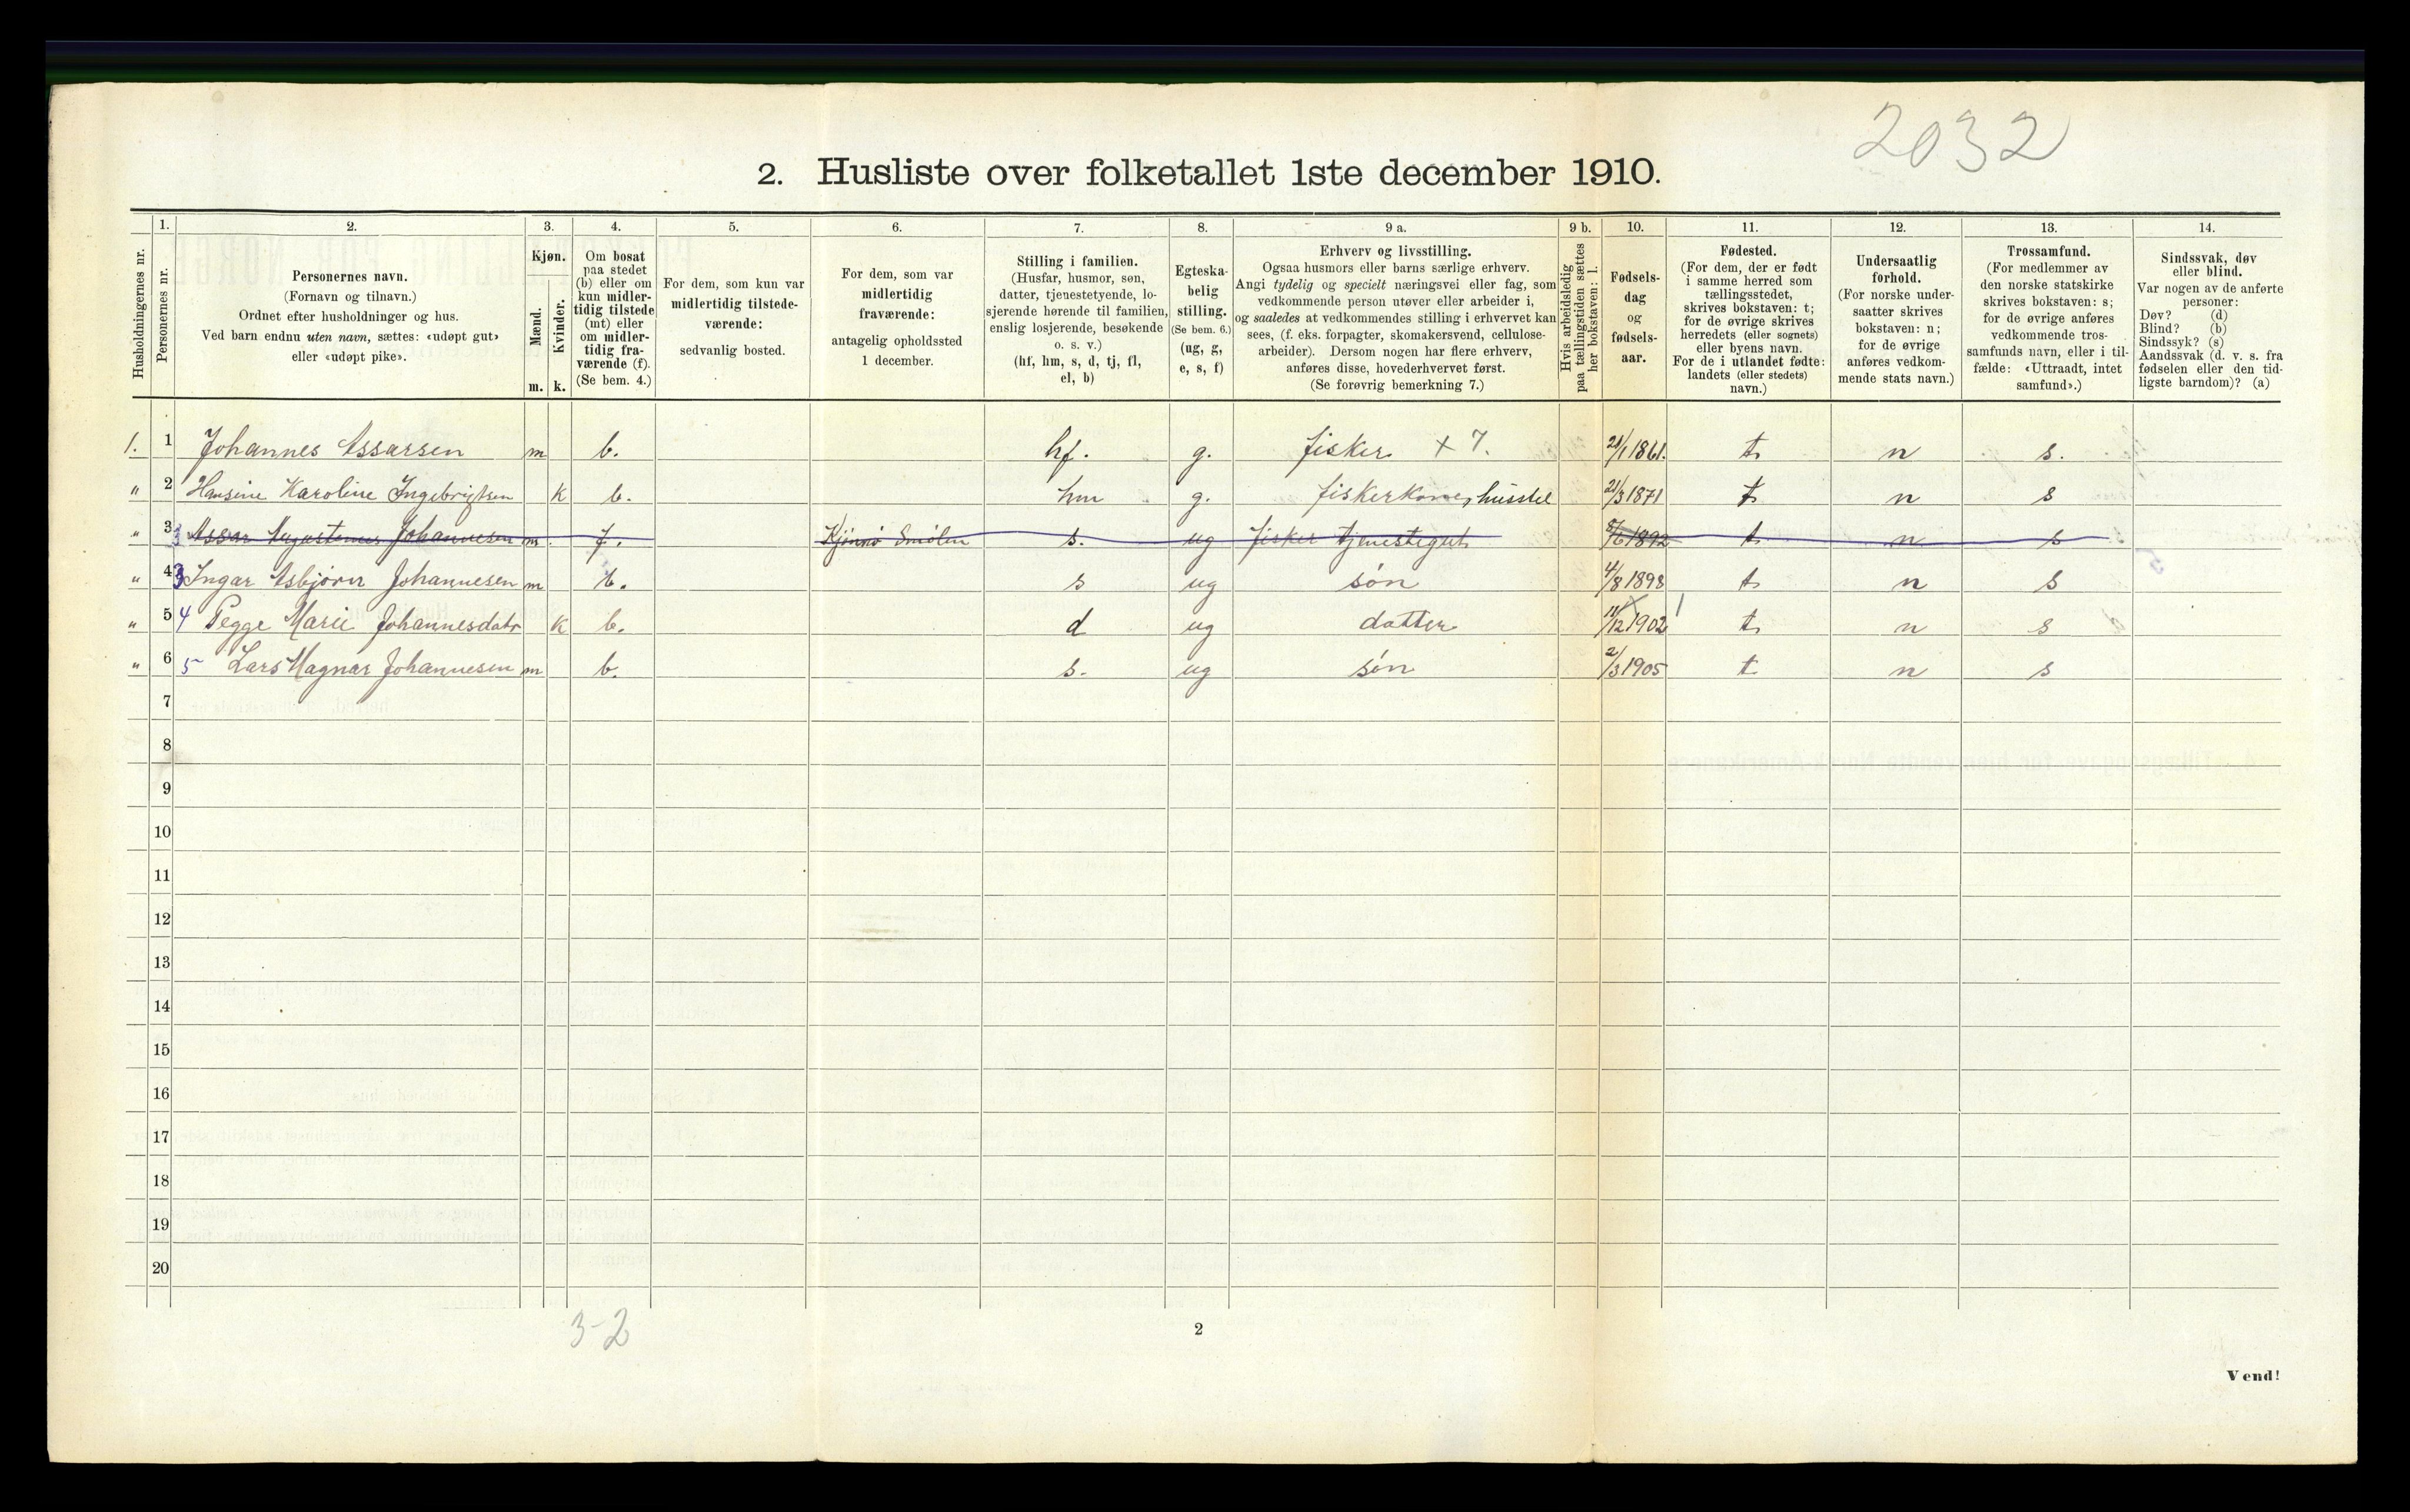 2032
2. Husliste over folketallet 1ste december 1910.
Husholdningernes nr.
1.
Personernes nr.
2.
Personernes navn.
(Fornavn og tilnavn.)
Ordnet efter husholdninger og hus.
Ved barn endnu uten navn, sættes: «udøpt gut»
eller «udøpt pike».
3.
Kjøn.
Mænd.
Kvinder.
m. k.
4.
Om bosat
paa stedet
(b) eller om
kun midler-
tidig tilstede
(mt) eller
om midler-
tidig fra-
værende (f).
(Se bem. 4.)
5.
For dem, som kun var
midlertidig tilstede-
værende:
sedvanlig bosted.
6.
For dem, som var
midlertidig
fraværende:
antagelig opholdssted
1 december.
7.
Stilling i familien.
(Husfar, husmor, søn,
datter, tjenestetyende, lo-
sjerende hørende til familien,
enslig losjerende, besøkende
o. s. v.)
(hf, hm, s, d, tj, fl,
el, b)
8.
Egteska-
belig
stilling.
(Se bem. 6.)
(ug, g,
e, s, f)
9 a.
Erhverv og livsstilling.
Ogsaa husmors eller barns særlige erhverv.
Angi tydelig og specielt næringsvei eller fag, som
vedkommende person utøver eller arbeider i,
og saaledes at vedkommendes stilling i erhvervet kan
sees, (f. eks. forpagter, skomakersvend, cellulose-
arbeider). Dersom nogen har flere erhverv,
anføres disse, hovederhvervet først.
(Se forøvrig bemerkning 7.)
9 b.
Hvis arbeidsledig
paa tællingstiden sættes
her bokstaven: l.
10.
Fødsels-
dag
og
fødsels-
aar.
11.
Fødested.
(For dem, der er født
i samme herred som
tællingsstedet,
skrives bokstaven: t;
for de øvrige skrives
herredets (eller sognets)
eller byens navn.
For de i utlandet fødte:
landets (eller stedets)
navn.)
12.
Undersaatlig
forhold.
(For norske under-
saatter skrives
bokstaven: n;
for de øvrige
anføres vedkom-
mende stats navn.)
13.
Trossamfund.
(For medlemmer av
den norske statskirke
skrives bokstaven: s;
for de øvrige anføres
vedkommende tros-
samfunds navn, eller i til-
fælde: «Uttraadt, intet
samfund».)
14.
Sindssvak, døv
eller blind.
Var nogen av de anførte
personer:
Døv? (d)
Blind? (b)
Sindssyk? (s)
Aandssvak (d. v. s. fra
fødselen eller den tid-
ligste barndom)? (a)
1. 1 Johannes Assarsen m b. hf. g. fisker + 7. 21/1 1861. t. n s.
" 2 Hansine Karoline Ingebrigtsen k b. hm g. fiskerkone, husstel 21/3 1871 t n s
" 3 Assar Augustinus Johannesen m f. Kjønnø Smølen s. ug fisker tjenestegut 1892 t. n s
" 4 3 Ingar Asbjørn Johannesen m b. s ug søn 4/8 1898 t. n s
" 5 4 Pegge Marie Johannesdatr k b. d ug datter 11/12 1902 t. n s
" 6 5 Lars Magnar Johannesen m b. s. ug søn 2/3 1905 t n s
7
8
9
10
11
12
13
14
15
16
17
18
19
20
3-2
2
Vend!